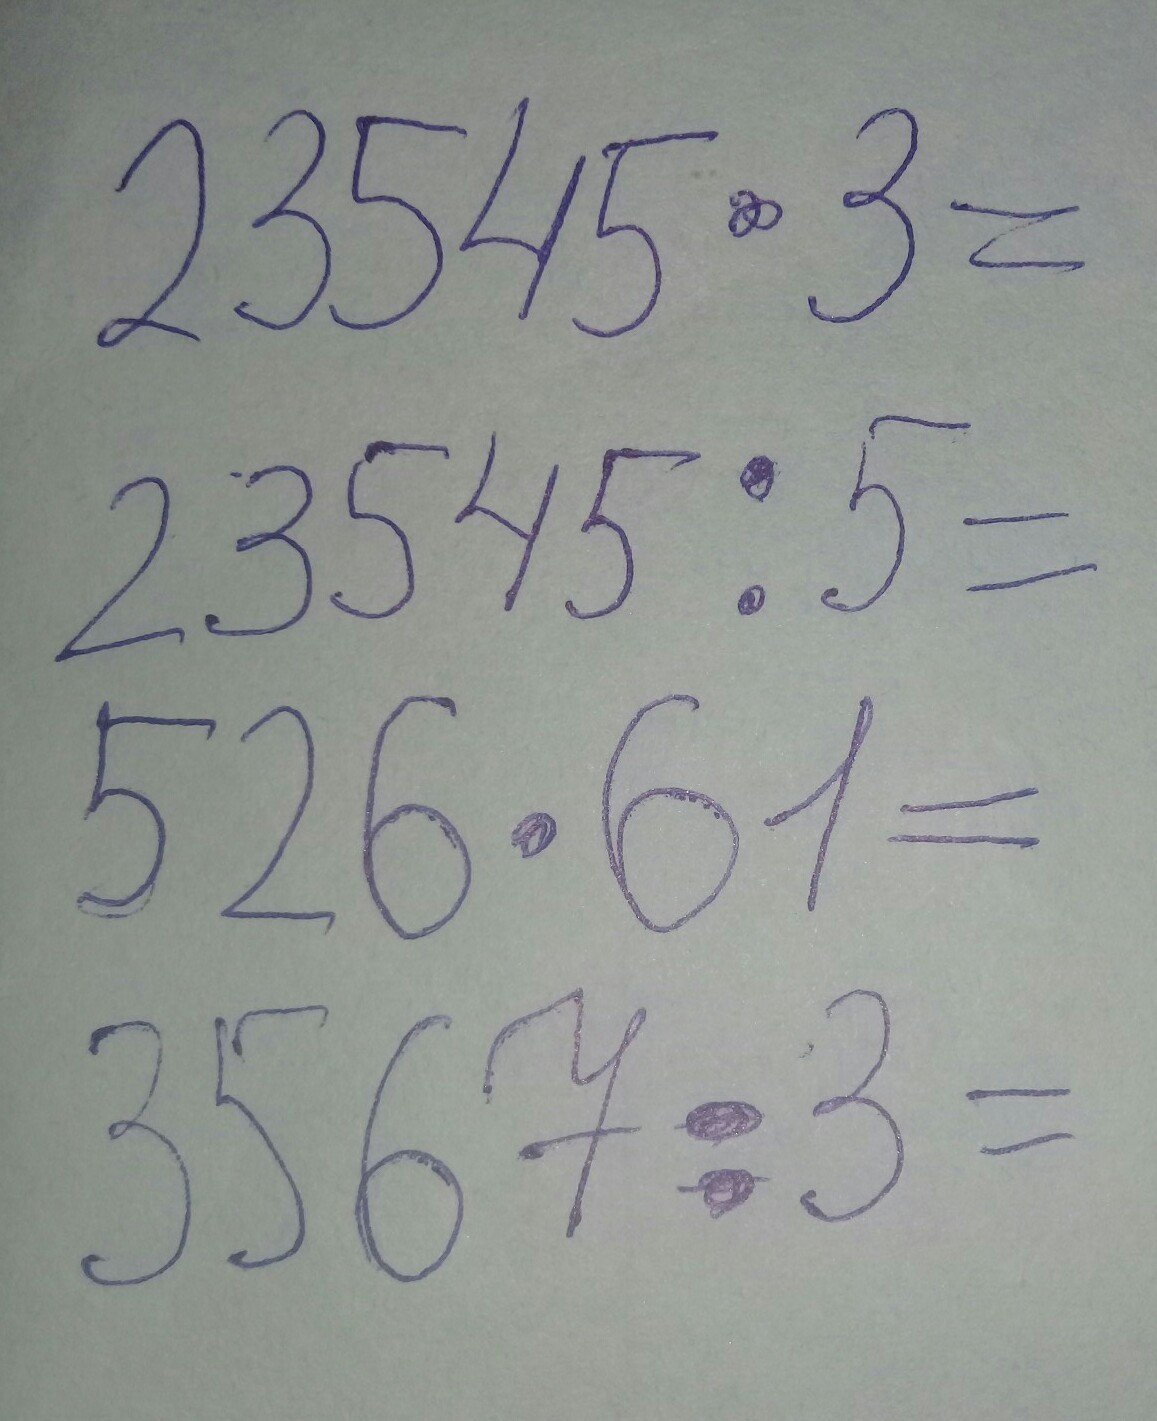 23545·3=
23545:5=
526·61=
3567:3=